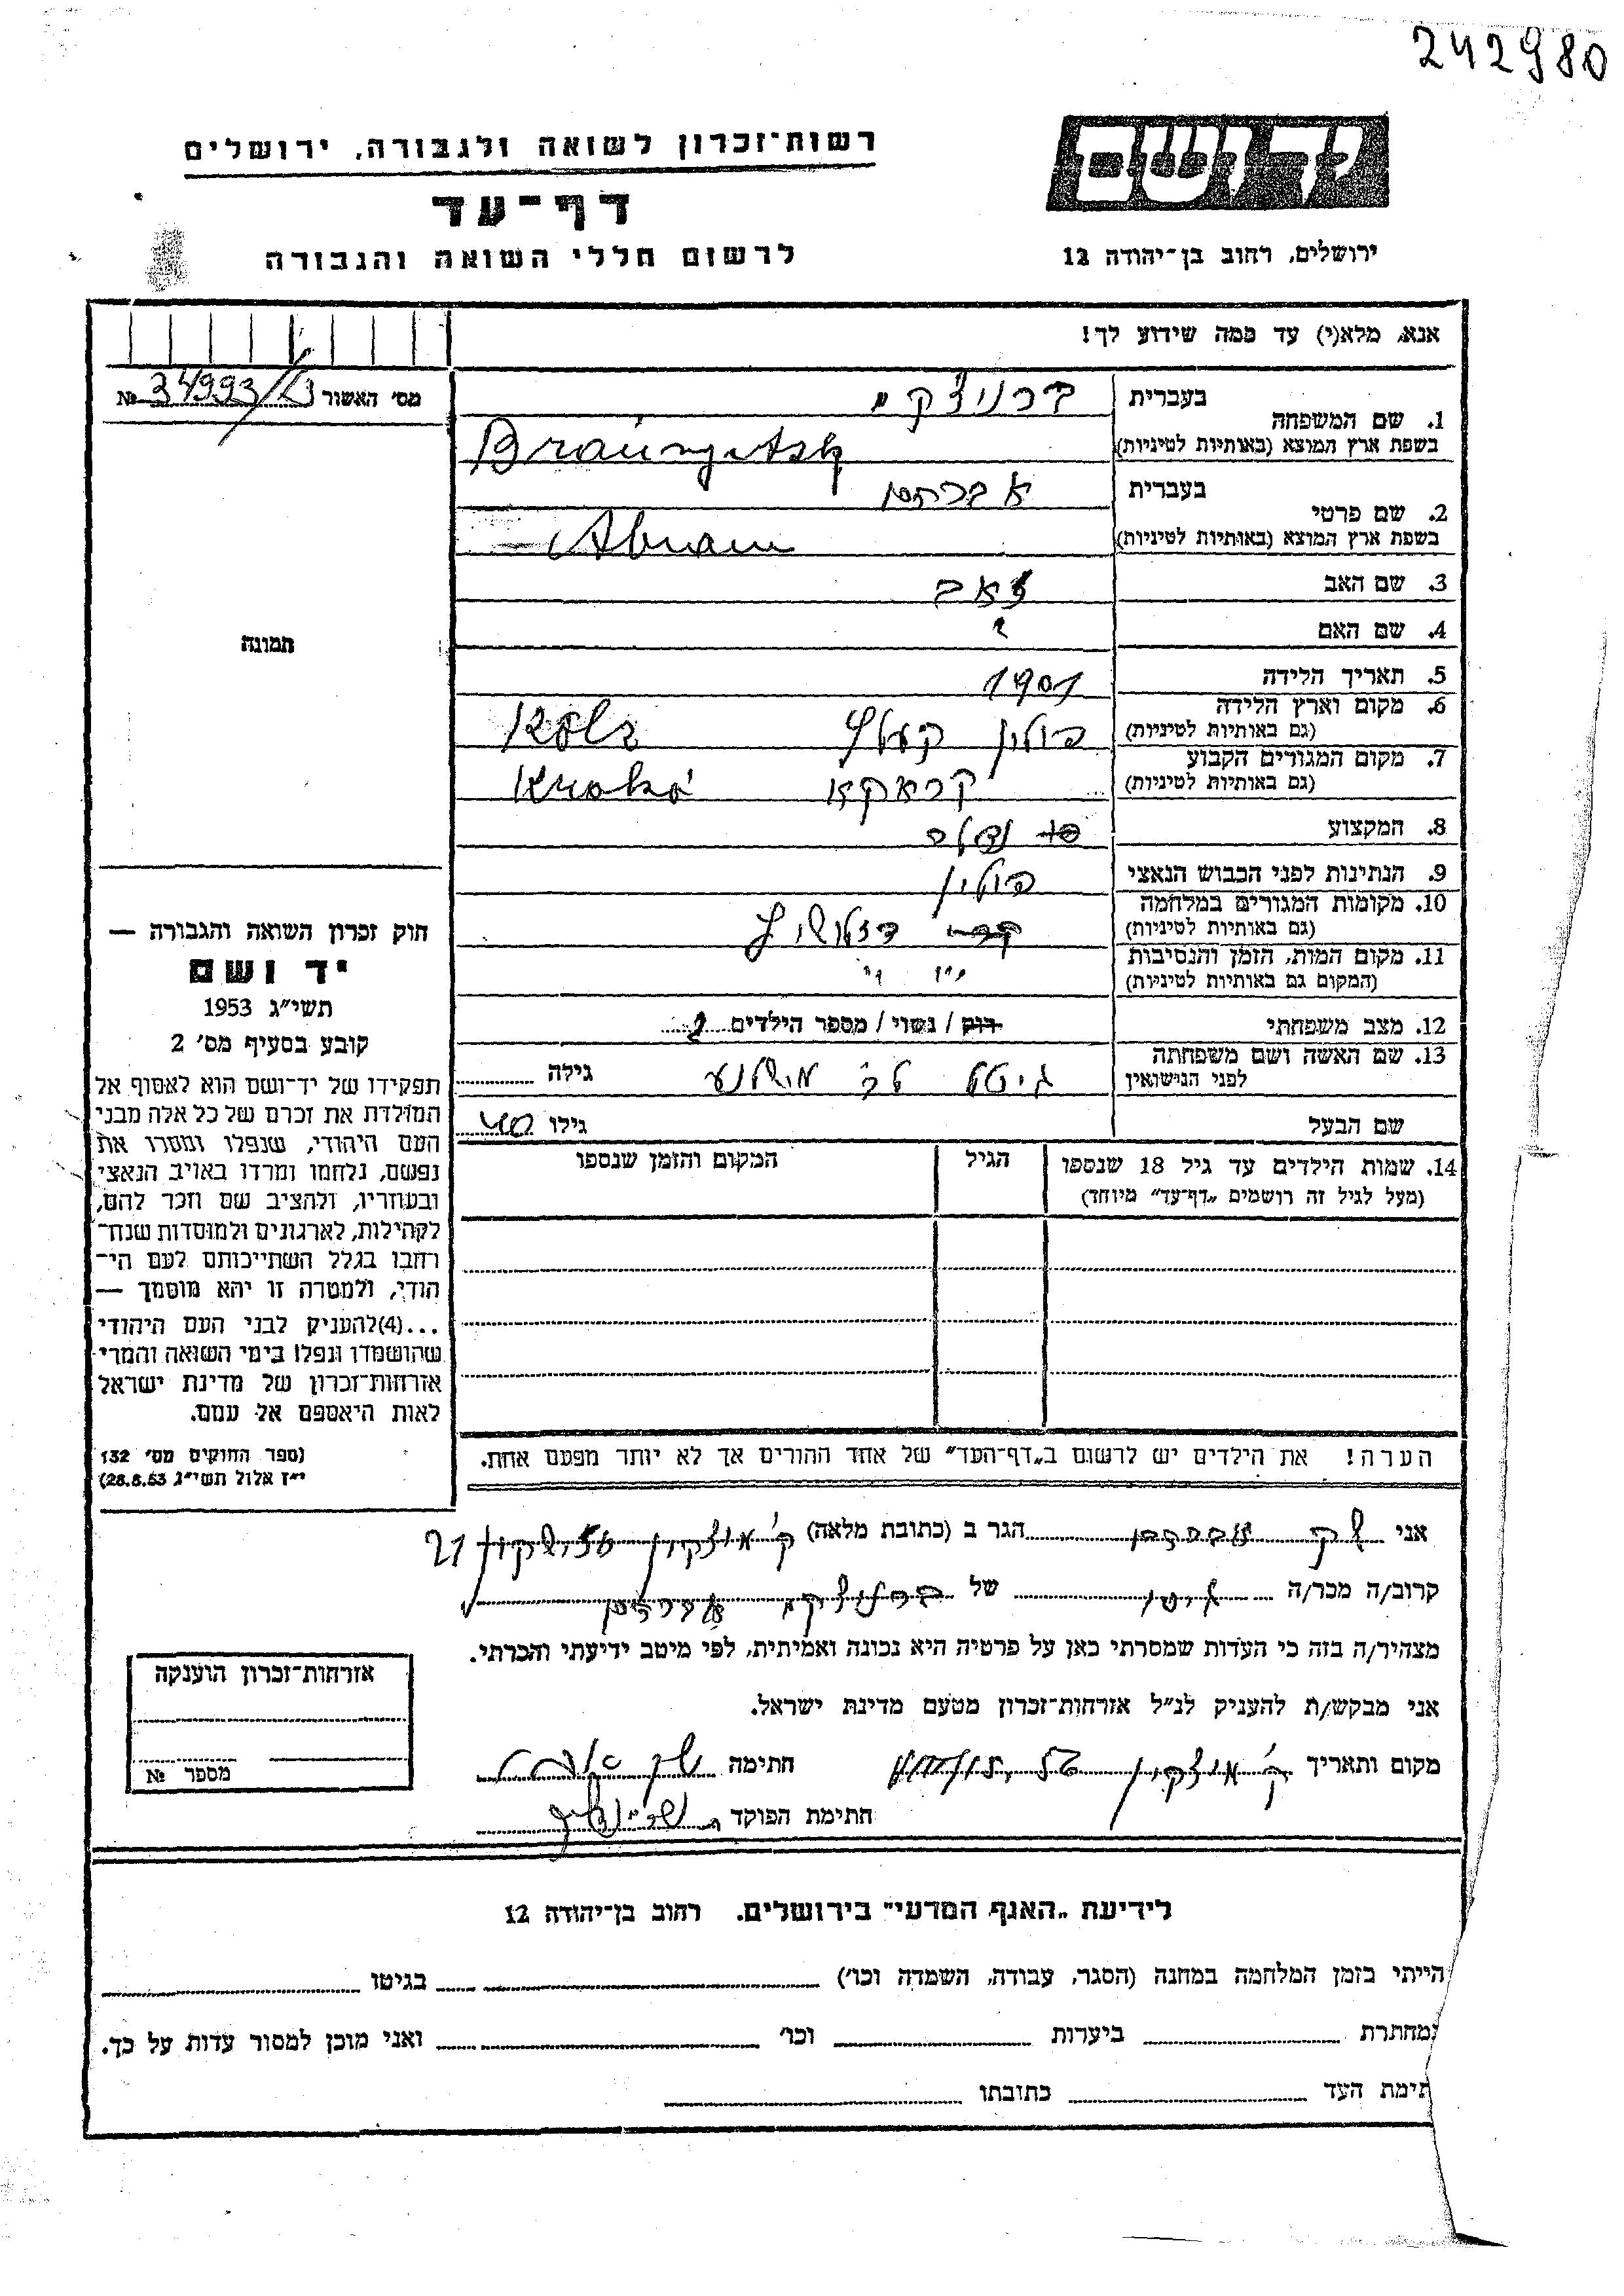 242980
יד ושם
ירושלים, רחוב בן־יהודה 12
רשות־זכרון לשואה ולגבורה, ירושלים
דף־עד
לרשום חללי השואה והגבורה
אנא, מלא(י) עד כמה שידוע לך!
מס' האשור № 34993/
1. שם המשפחה
בעברית ברניצקי
בשפת ארץ המוצא (באותיות לטיניות)
2. שם פרטי
בעברית אברהם
בשפת ארץ המוצא (באותיות לטיניות) Abram
3. שם האב זאב
4. שם האם ?
5. תאריך הלידה 1901
6. מקום וארץ הלידה
(גם באותיות לטיניות) פולין
7. מקום המגורים הקבוע
(גם באותיות לטיניות) קראקא
8. המקצוע
9. הנתינות לפני הכבוש הנאצי פולין
10. מקומות המגורים במלחמה
(גם באותיות לטיניות)
11. מקום המות, הזמן והנסיבות
(המקום גם באותיות לטיניות)
12. מצב משפחתי רוק / נשוי / מספר הילדים
13. שם האשה ושם משפחתה
לפני הנישואין גיטל גילה
שם הבעל גילו 40
14. שמות הילדים עד גיל 18 שנספו
(מעל לגיל זה רושמים „דף־עד" מיוחד)
הגיל
המקום והזמן שנספו
הערה! את הילדים יש לרשום ב„דף־העד" של אחד ההורים אך לא יותר מפעם אחת.
תמונה
חוק זכרון השואה והגבורה —
יד ושם
תשי"ג 1953
קובע בסעיף מס' 2
תפקידו של יד־ושם הוא לאסוף אל
המולדת את זכרם של כל אלה מבני
העם היהודי, שנפלו ומסרו את
נפשם, נלחמו ומרדו באויב הנאצי
ובעוזריו, ולהציב שם וזכר להם,
לקהילות, לארגונים ולמוסדות שנח־
רבו בגלל השתייכותם לעם הי־
הודי, ולמטרה זו יהא מוסמך —
...(4)להעניק לבני העם היהודי
שהושמדו ונפלו בימי השואה והמרי
אזרחות־זכרון של מדינת ישראל
לאות היאספם אל עמם.
(ספר החוקים מס' 132
י"ז אלול תשי"ג 28.8.53)
אני הגר ב (כתובת מלאה) ק' מוצקין 21
קרוב/ה מכר/ה גיסו של ברניצקי אברהם
מצהיר/ה בזה כי העדות שמסרתי כאן על פרטיה היא נכונה ואמיתית, לפי מיטב ידיעתי והכרתי.
אני מבקש/ת להעניק לנ"ל אזרחות־זכרון מטעם מדינת ישראל.
מקום ותאריך ק' מוצקין חתימה
חתימת הפוקד
אזרחות־זכרון הוענקה
מספר №
לידיעת „האגף המדעי" בירושלים. רחוב בן־יהודה 12
הייתי בזמן המלחמה במחנה (הסגר, עבודה, השמדה וכו') בגיטו
במחתרת ביערות וכו' ואני מוכן למסור עדות על כך.
תימת העד כתובתו